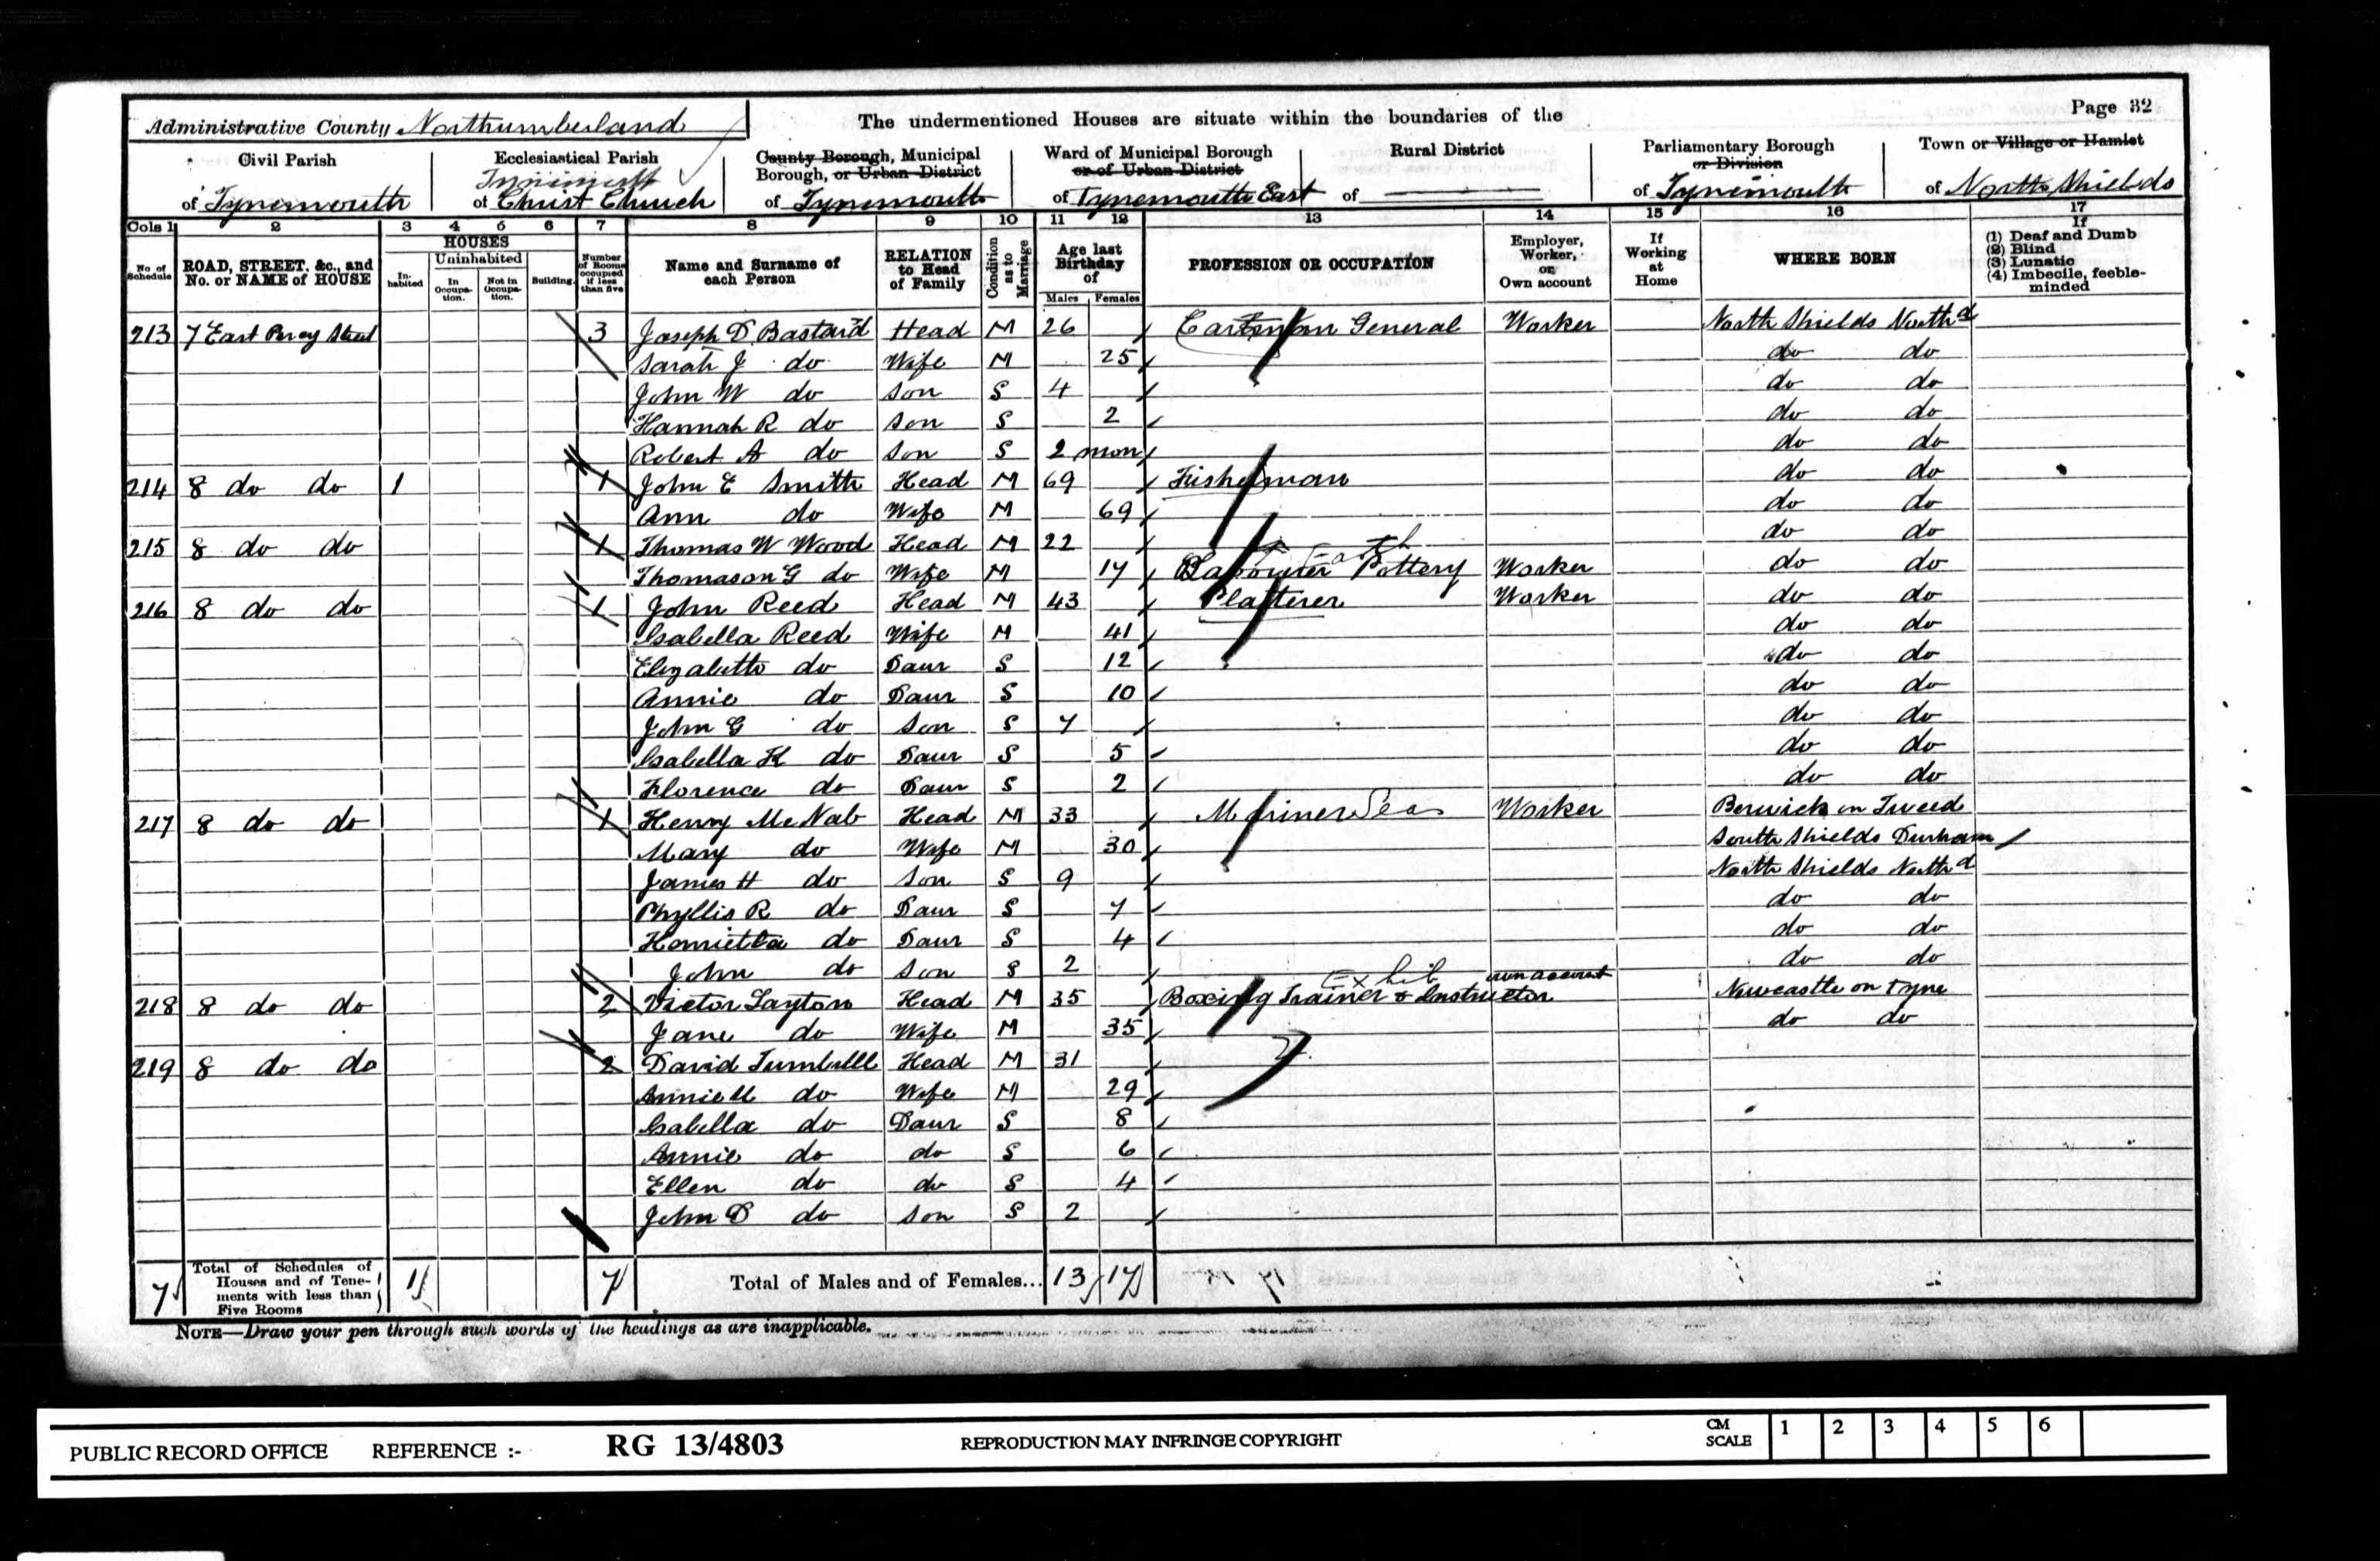 Page 32
Administrative County Northumberland
The undermentioned Houses are situate within the boundaries of the
Civil Parish
of Tynemouth
Ecclesiastical Parish
Tynemouth
of Christ Church
County Borough, Municipal
Borough, or Urban District
of Tynemouth
Ward of Municipal Borough
or of Urban District
of Tynemouth East
Rural District
of
Parliamentary Borough
or Division
of Tynemouth
Town or Village or Hamlet
of North Shields
Cols 1 2 3 4 5 6 7 8 9 10 11 12 13 14 15 16 17
No of Schedule
ROAD, STREET, &c., and No. or NAME of HOUSE
HOUSES
In-habited
Uninhabited
In Occupa-tion.
Not in Occupa-tion.
Building
Number of Rooms occupied if less than five
Name and Surname of each Person
RELATION to Head of Family
Condition as to Marriage
Age last Birthday of
Males Females
PROFESSION OR OCCUPATION
Employer, Worker, or Own account
If Working at Home
WHERE BORN
If
(1) Deaf and Dumb
(2) Blind
(3) Lunatic
(4) Imbecile, feeble-minded
213 7 East Percy Street 3 Joseph D Bastard Head M 26 Cartman General Worker North Shields North'd
Sarah J do Wife M 25 do do
John W do Son S 4 do do
Hannah R do Son S 2 do do
Robert A do Son S 2 mon do do
214 8 do do 1 1 John E Smith Head M 69 Fisherman do do
Ann do Wife M 69 do do
215 8 do do 1 Thomas W Wood Head M 22 do do
Thomason G do Wife M 17 Labourer Pottery Worker do do
216 8 do do 1 John Reed Head M 43 Platterer Worker do do
Isabella Reed Wife M 41 do do
Elizabeth do Daur S 12 do do
Annie do Daur S 10 do do
John G do Son S 7 do do
Isabella K do Daur S 5 do do
Florence do Daur S 2 do do
217 8 do do 1 Henry McNab Head M 33 Mariner Seas Worker Berwick on Tweed
Mary do Wife M 30 South Shields Durham
James H do Son S 9 North Shields North'd
Phyllis R do Daur S 7 do do
Henrietta do Daur S 4 do do
John do Son S 2 do do
218 8 do do 2 Victor Layton Head M 35 Boxing Trainer & Instructor Exhib own account Newcastle on Tyne
Jane do Wife M 35 do do
219 8 do do 2 David Turnbull Head M 31
Annie M do Wife M 29
Isabella do Daur S 8
Annie do do S 6
Ellen do do S 4
John D do Son S 2
7 Total of Schedules of Houses and of Tene-ments with less than Five Rooms 1 7 Total of Males and of Females... 13 17
NOTE—Draw your pen through such words of the headings as are inapplicable.
PUBLIC RECORD OFFICE REFERENCE :- RG 13/4803 REPRODUCTION MAY INFRINGE COPYRIGHT CM SCALE 1 2 3 4 5 6